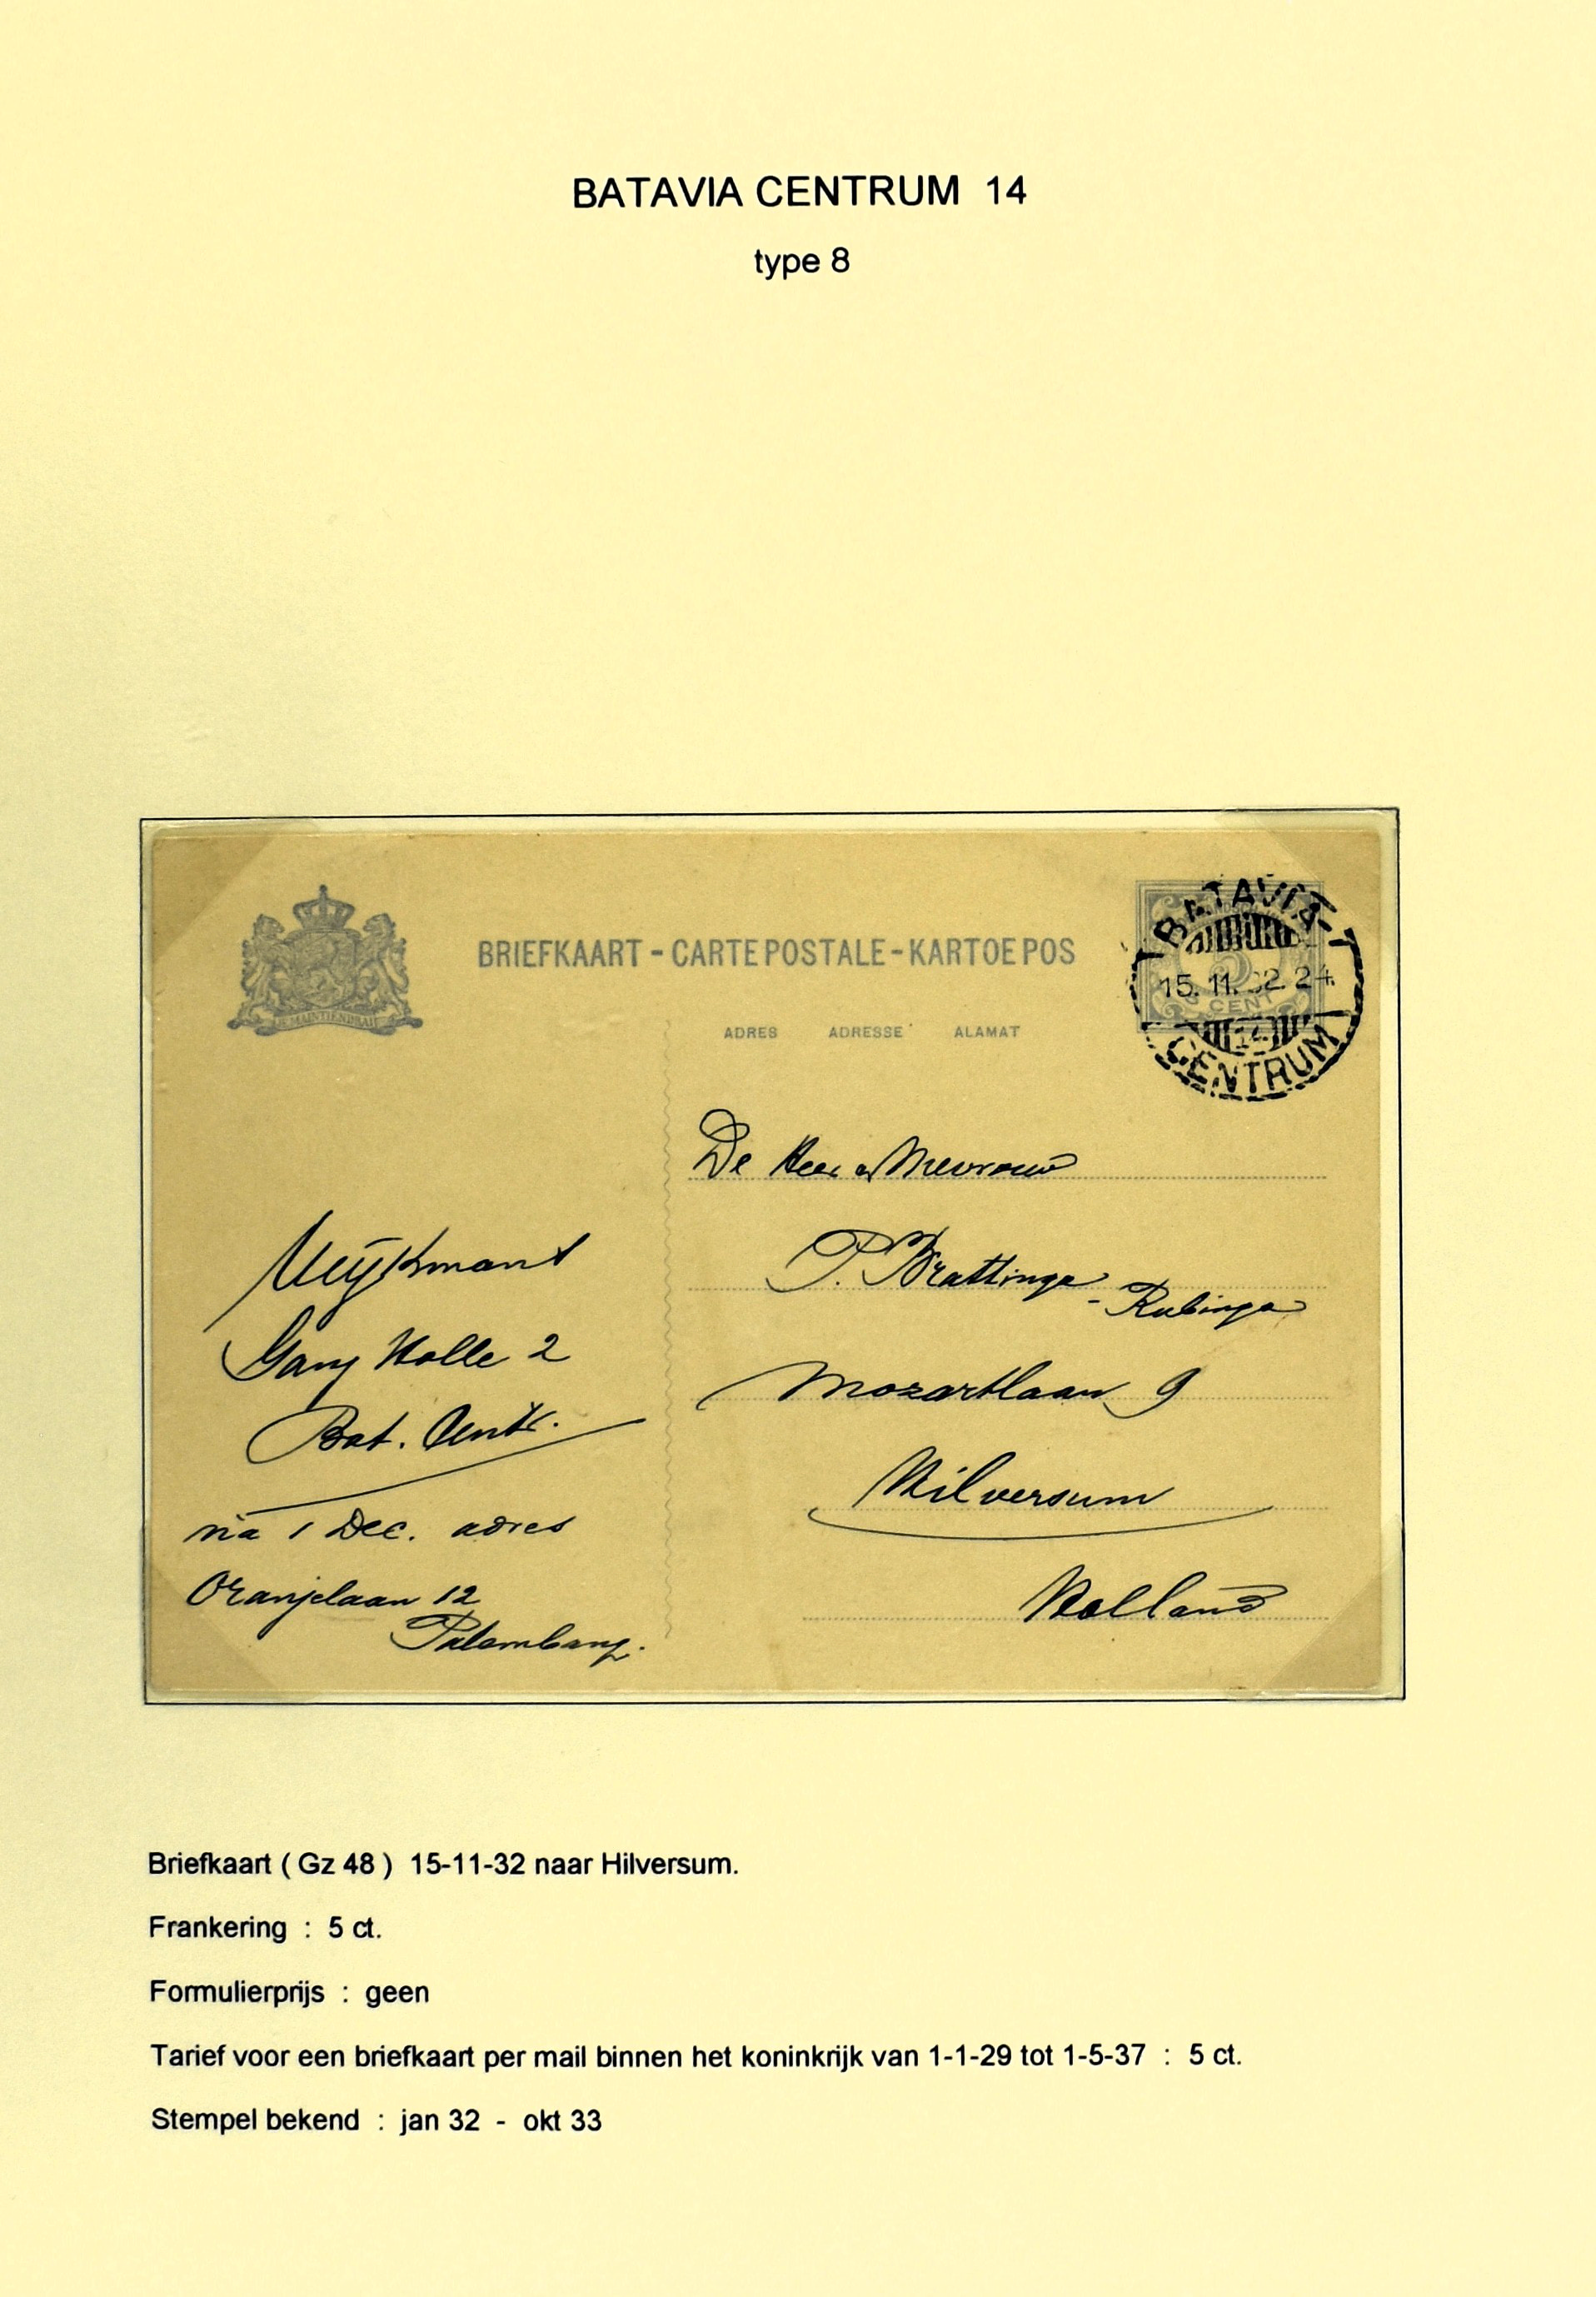 BATAVIA CENTRUM 14
type 8
BRIEFKAART - CARTE POSTALE - KARTOEPOS
ADRES ADRESSE ALAMAT
JE MAINTIENDRAI
BATAVIA-
15.11.32.24
CENT
14
CENTRUM
De Heer en Mevrouw
P. Brattinga
- Rubinga
Mozartlaan 9
Hilversum
Holland
Gang Holle 2
Bat. Centr.
na 1 Dec. adres
Oranjelaan 12
Palembang.
Briefkaart ( Gz 48 ) 15-11-32 naar Hilversum.
Frankering : 5 ct.
Formulierprijs : geen
Tarief voor een briefkaart per mail binnen het koninkrijk van 1-1-29 tot 1-5-37 : 5 ct.
Stempel bekend : jan 32 - okt 33